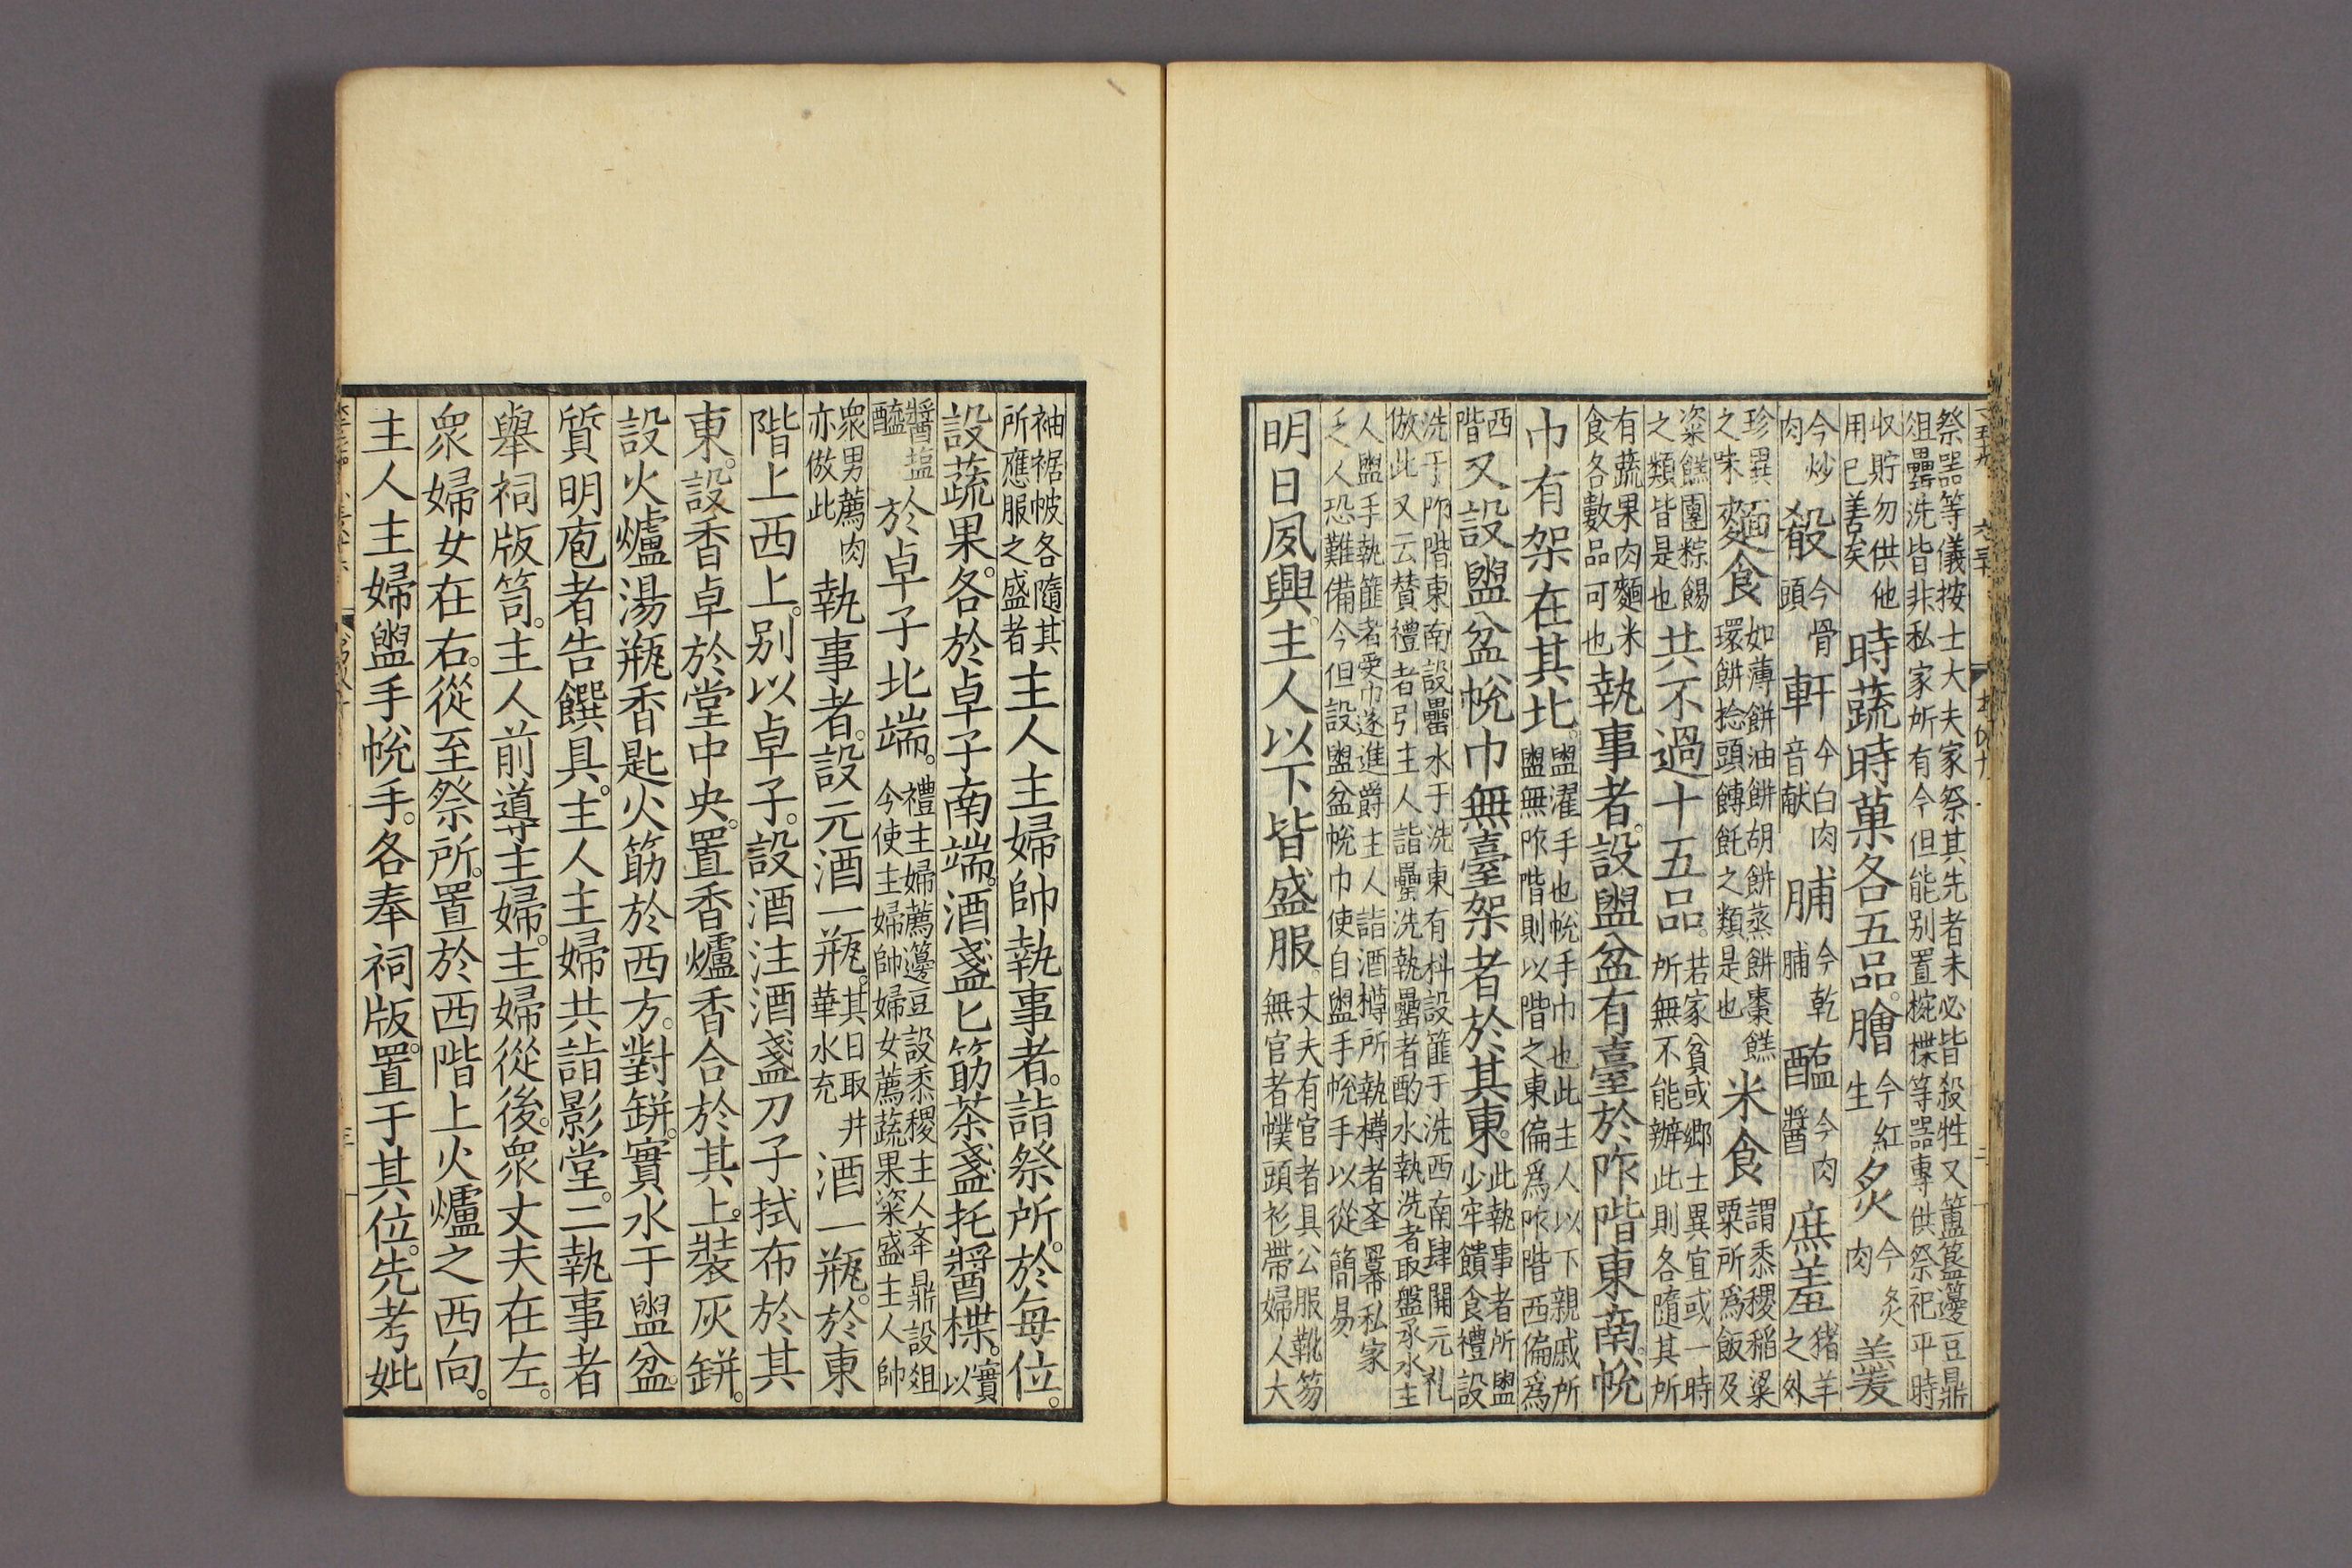 祭器等儀按士大夫家祭其先者未必皆殺牲又簠簋籩豆鼎
俎罍洗皆非私家所有今但能别置椀楪等器專供祭祀平時
収貯勿供他
用已善矣
時蔬時菓各五品。膾
今紅
生
炙
今炙
肉
羹
今炒
肉
殽
今骨
頭
軒
今白肉
音献
脯
今乾
脯
醢
今肉
醬
庶羞
猪羊
之外
珍異
之味
麵食
如薄餅油餅胡餅蒸餅棗餻
環餅捻頭餺飥之類是也
米食
謂黍稷稻粱
粟所爲飯及
粢餻團粽餳
之類皆是也
共不過十五品。
若家貧或鄉土異宜或一時
所無不能辦此則各隨其所
有蔬果肉麵米
食各數品可也
執事者。設盥盆有臺於阼階東南。帨
巾有架在其北。
盥濯手也帨手巾也此主人以下親戚所
盥無阼階則以階之東偏爲阼階西偏爲
西
階
又設盥盆帨巾無臺架者於其東。
此執事者所盥
少牢饋食禮設
洗于阼階東南設罍水于洗東有枓設篚于洗西南肆開元礼
倣此又云賛禮者引主人詣罍洗執罍者酌水執洗者取盤承水主
人盥手執篚者受巾遂進爵主人詣酒樽所執樽者舉羃私家
乏人恐難備今但設盥盆帨巾使自盥手帨手以從簡易
明日夙興。主人以下皆盛服。
丈夫有官者具公服靴笏
無官者幞頭衫帶婦人大
袖裾帔各隨其
所應服之盛者
主人主婦帥執事者。詣祭所。於每位。
設蔬果。各於卓子南端。酒盞匕筯茶盞托醬楪。
實
以
醬塩
醯
於卓子北端。
禮主婦薦籩豆設黍稷主人舉鼎設俎
今使主婦帥婦女薦蔬果粢盛主人帥
衆男薦肉
亦倣此
執事者。設元酒一瓶。
其日取井
華水充
酒一瓶。於東
階上西上。别以卓子。設酒注酒盞刀子拭布於其
東。設香卓於堂中央。置香爐香合於其上。裝灰缾。
設火爐湯瓶香匙火筯於西方。對缾。實水于盥盆。
質明庖者告饌具。主人主婦共詣影堂。二執事者
舉祠版笥。主人前導主婦。主婦從後。衆丈夫在左。
衆婦女在右。從至祭所。置於西階上火爐之西向。
主人主婦盥手帨手。各奉祠版。置于其位。先考妣